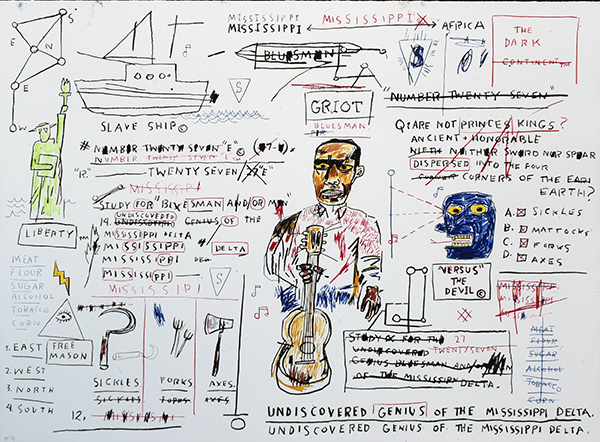 S
E
N
E
W
MISSISSIPPI
MISSISSIPPI
MISSISSIPPIX
AFRICA
THE
DARK
CONTINENT
BLUESMAN
"NUMBER TWENTY SEVEN"
S
SLAVE SHIP©
GRIOT
BLUESMAN
# NUMBER TWENTY SEVEN "E"©
NUMBER TWENTY SEVEN "E"
TWENTY SEVEN
MISSISSIPPI
STUDY FOR "BLUESMAN AND/OR MAN"
14. UNDISCOVERED GENIUS OF THE
MISSISSIPPI DELTA
MISSISSIPPI
MISSISSIPPI
DELTA
MISSISSIPPI
S
Q: ARE NOT PRINCES KINGS?
ANCIENT + HONORABLE
NEITHER SWORD NOR SPEAR
DISPERSED INTO THE FOUR
CORNERS OF THE EAR
EARTH?
A. SICKLES
B. MATTOCKS
C. FORKS
D. AXES
"VERSUS"
THE
DEVIL©
LIBERTY
MEAT
FLOUR
SUGAR
ALCOHOL
TOBACCO
CORN
FREE
MASON
1. EAST
2. WEST
3. NORTH
4. SOUTH
SICKLES
FORKS
AXES.
SICKLES
FORKS
AXES
12.
STUDY FOR THE 27
UNDISCOVERED TWENTYSEVEN
GENIUS BLUESMAN AND/OR
OF THE MISSISSIPPI DELTA.
MEAT
FLOUR
SUGAR
ALCOHOL
TOBACCO
CORN
UNDISCOVERED GENIUS OF THE MISSISSIPPI DELTA.
UNDISCOVERED GENIUS OF THE MISSISSIPPI DELTA.